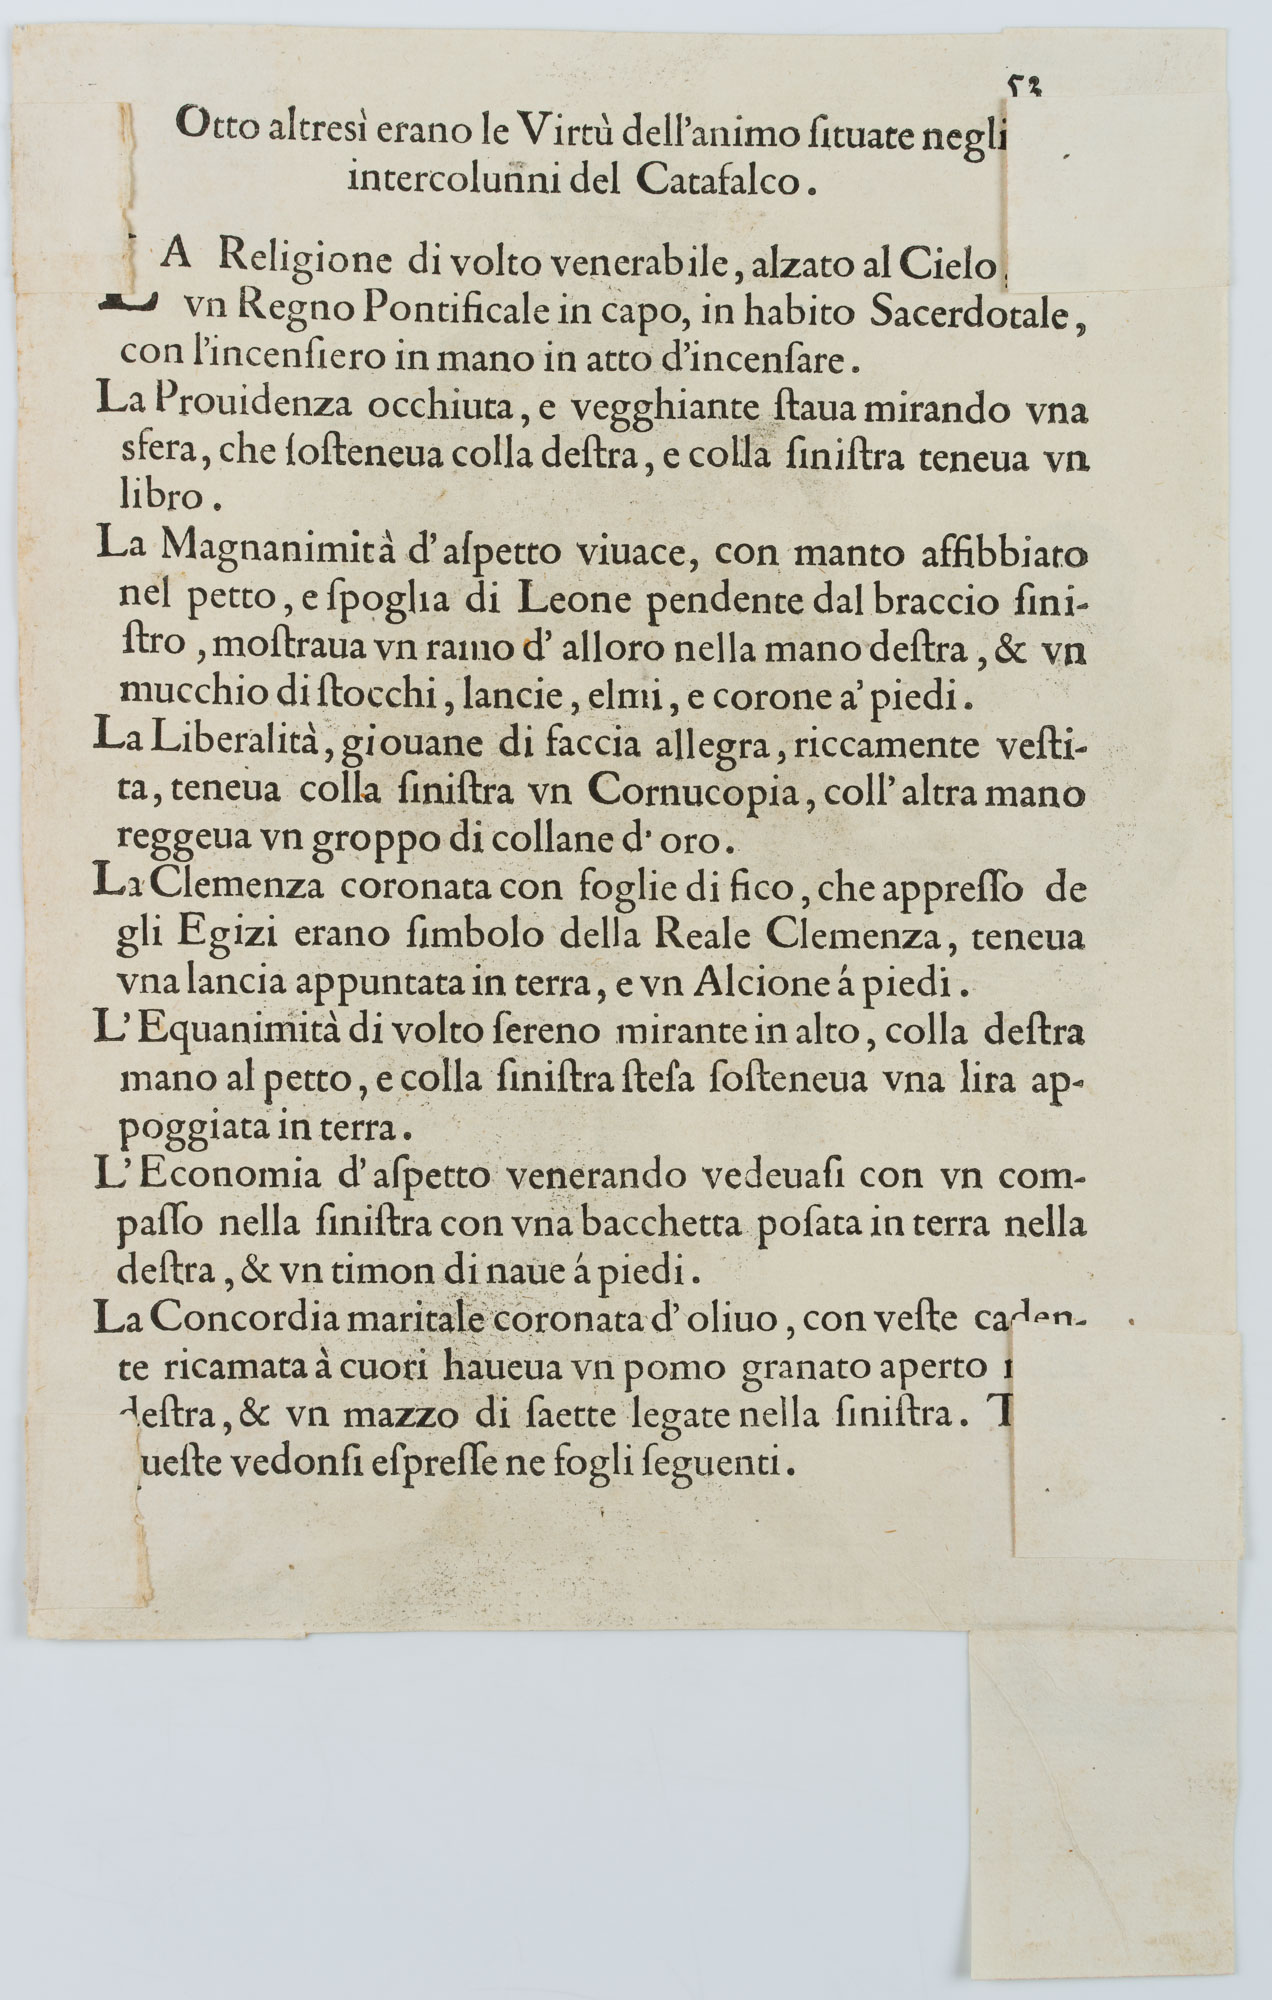 53
Otto altresì erano le Virtù dell'animo ſituate negli
intercolunni del Catafalco.
LA Religione di volto venerabile, alzato al Cielo
vn Regno Pontificale in capo, in habito Sacerdotale,
con l'incenſiero in mano in atto d'incenſare.
La Prouidenza occhiuta, e vegghiante ſtaua mirando vna
sfera, che ſoſteneua colla deſtra, e colla ſiniſtra teneua vn
libro.
La Magnanimità d'aſpetto viuace, con manto affibbiato
nel petto, e ſpoglia di Leone pendente dal braccio ſini-
ſtro, moſtraua vn ramo d'alloro nella mano deſtra, & vn
mucchio di ſtocchi, lancie, elmi, e corone a' piedi.
La Liberalità, giouane di faccia allegra, riccamente veſti-
ta, teneua colla ſiniſtra vn Cornucopia, coll'altra mano
reggeua vn groppo di collane d'oro.
La Clemenza coronata con foglie di fico, che appreſſo de
gli Egizi erano ſimbolo della Reale Clemenza, teneua
vna lancia appuntata in terra, e vn Alcione á piedi.
L'Equanimità di volto ſereno mirante in alto, colla deſtra
mano al petto, e colla ſiniſtra ſteſa ſoſteneua vna lira ap-
poggiata in terra.
L'Economia d'aſpetto venerando vedeuaſi con vn com-
paſſo nella ſiniſtra con vna bacchetta poſata in terra nella
deſtra, & vn timon di naue á piedi.
La Concordia maritale coronata d'oliuo, con veſte caden-
te ricamata à cuori haueua vn pomo granato aperto
deſtra, & vn mazzo di ſaette legate nella ſiniſtra.
ueſte vedonſi eſpreſſe ne fogli ſeguenti.